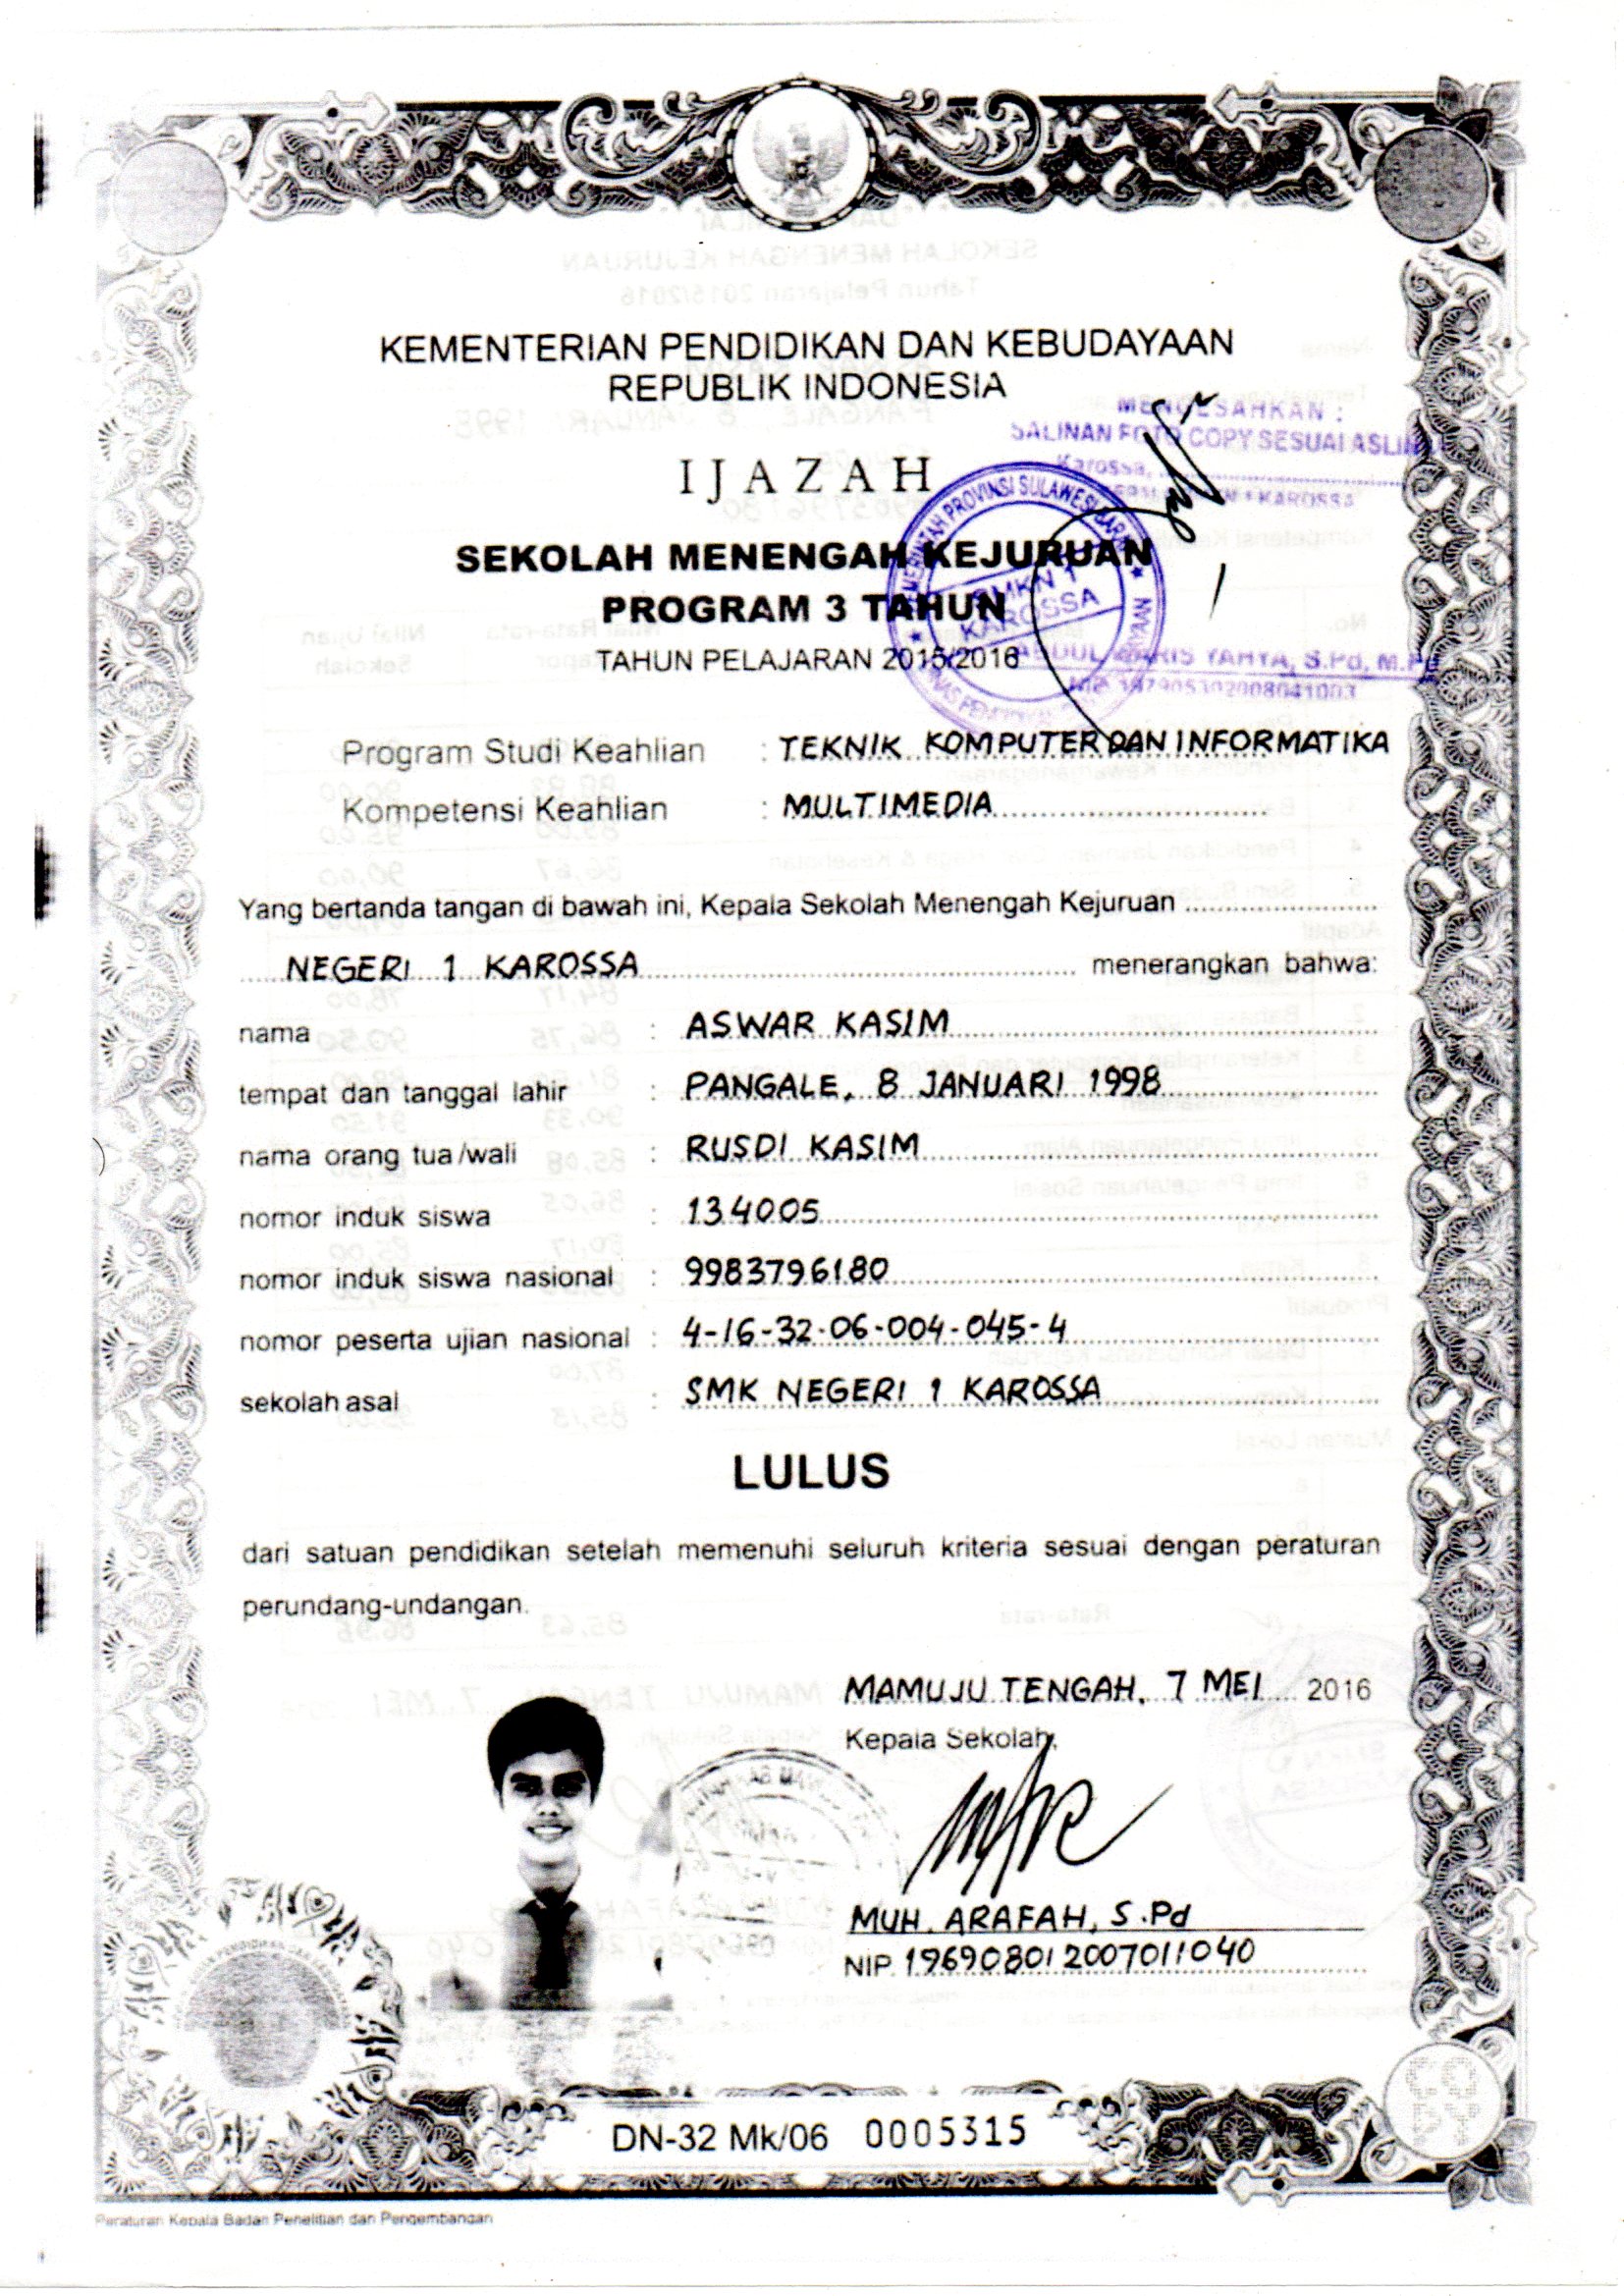 KEMENTERIAN PENDIDIKAN DAN KEBUDAYAAN
REPUBLIK INDONESIA
MENGESAHKAN :
SALINAN FOTO COPY SESUAI ASLINYA
Karossa,
KAROSSA
IJAZAH
PEMERINTAH PROVINSI SULAWESI BARAT
SMKN 1
KAROSSA
SEKOLAH MENENGAH KEJURUAN
PROGRAM 3 TAHUN
TAHUN PELAJARAN 2015/2016
YAHYA, S.Pd, M.Pd
Program Studi Keahlian : TEKNIK KOMPUTER DAN INFORMATIKA
Kompetensi Keahlian : MULTIMEDIA
Yang bertanda tangan di bawah ini, Kepala Sekolah Menengah Kejuruan
NEGERI 1 KAROSSA menerangkan bahwa:
nama : ASWAR KASIM
tempat dan tanggal lahir : PANGALE, 8 JANUARI 1998
nama orang tua/wali : RUSDI KASIM
nomor induk siswa : 134005
nomor induk siswa nasional : 9983796180
nomor peserta ujian nasional : 4-16-32-06-004-045-4
sekolah asal : SMK NEGERI 1 KAROSSA
LULUS
dari satuan pendidikan setelah memenuhi seluruh kriteria sesuai dengan peraturan
perundang-undangan.
MAMUJU TENGAH, 7 MEI 2016
Kepala Sekolah,
MUH. ARAFAH, S.Pd
NIP 196908012007011040
COPY
DN-32 Mk/06 0005315
Peraturan Kepala Badan Penelitian dan Pengembangan